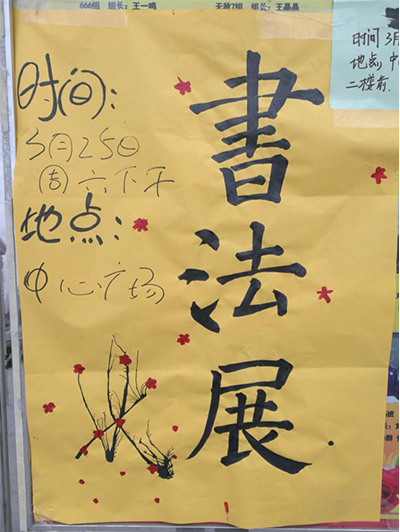 666组 组长:王一鸣
无敌7组 组长:王晶晶
时间 3月
地点 中
二楼前
時间:
3月25日
周六下午
地点:
中心广场
書法展